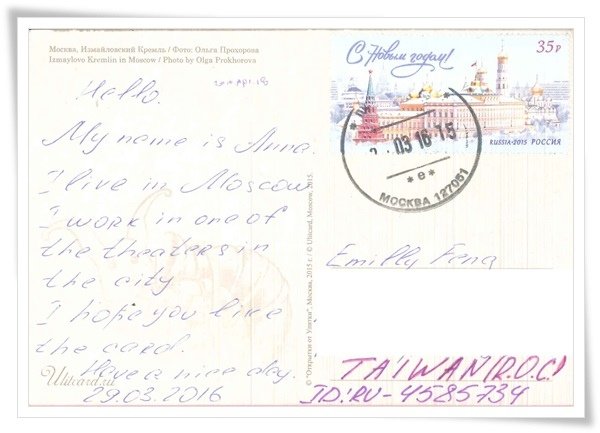 Москва. Измайловский Кремль / Фото: Ольга Прохорова
Izmaylovo Kremlin in Moscow / Photo by Olga Prokhorova
Hello.
My name is Anna.
I live in Moscow
I work in one of
the theaters in
the city
I hope you like
the card.
Have a nice day.
29.03.2016
Ulitcard.ru
© "Открытки от Улитки", Москва, 2015 г. / © Ulitcard, Moscow, 2015.
С Новым годом!
35р
RUSSIA·2015 РОССИЯ
03 16 15
* е *
МОСКВА 127051
Emilly Feng
TAIWAN (R.O.C)
ID: RU-4585734